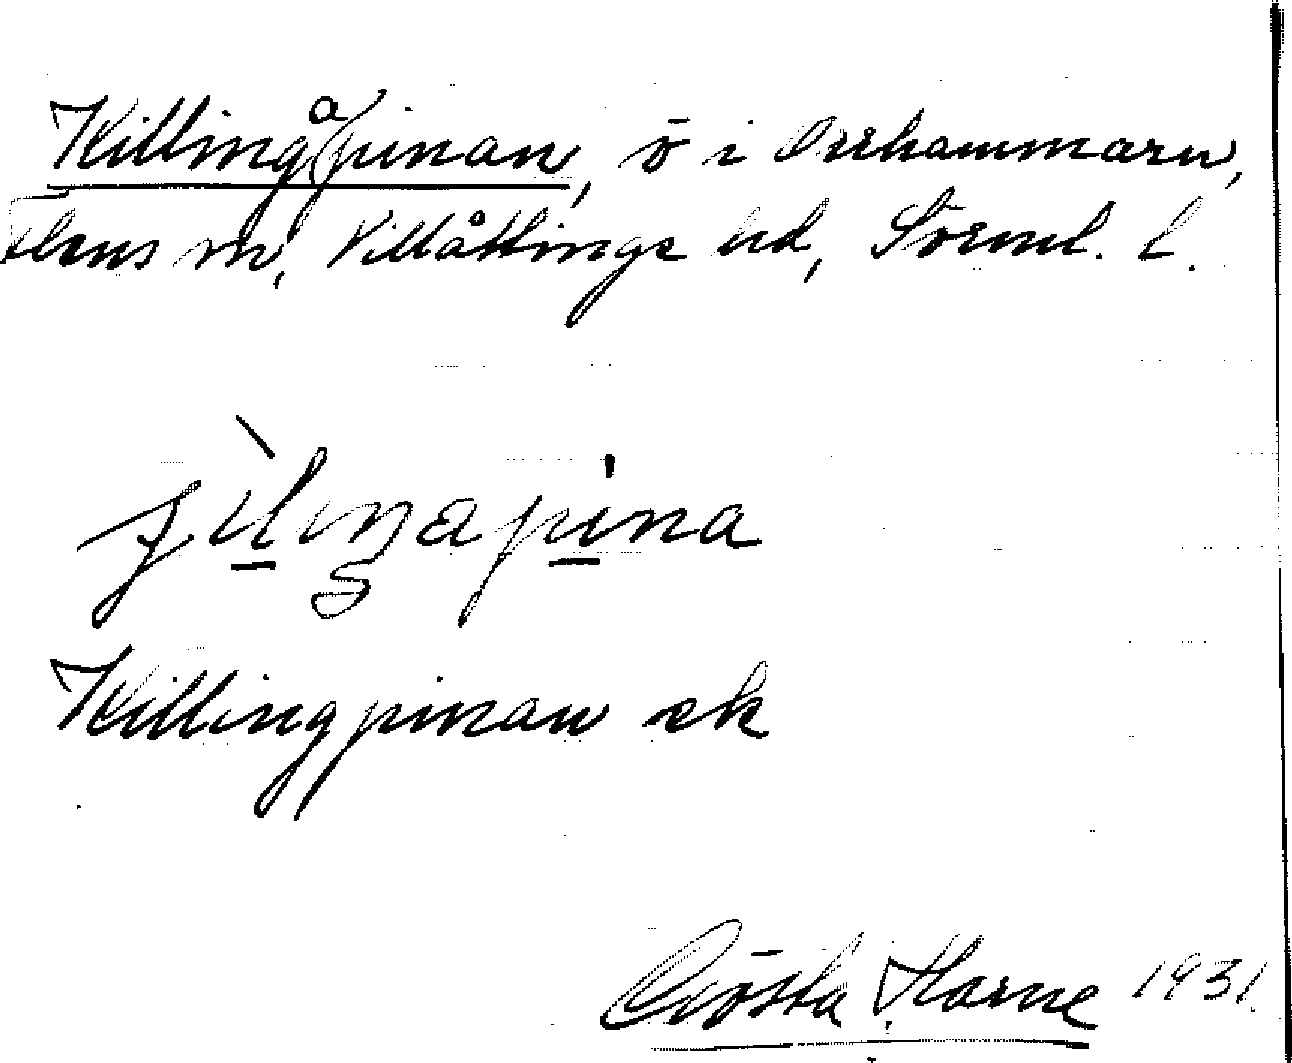 Killingapinan, ö i Orrhammaren,
Flens sn, Villåttinge hd, Sörml. l.
Killingpinan ek
Gösta Harne 1931.